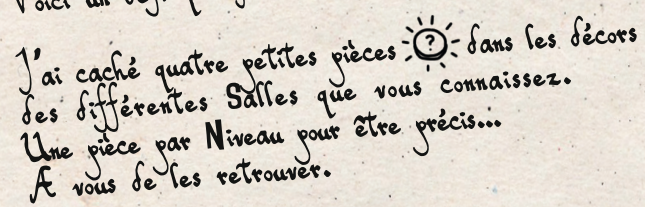 Voici un
J'ai caché quatre petites pièces ? dans les décors
des différentes Salles que vous connaissez.
Une pièce par Niveau pour être précis...
A vous de les retrouver.